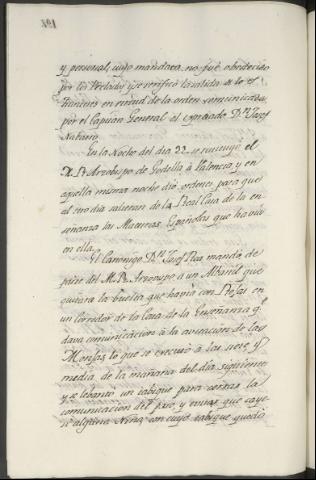 y personal, cuyo mandato no fue obedecido
por los Prelados y se verificó la salida de los
franceses en virtud de la orden comunicada
por el Capitan General el expresado Dn. Josef
Navarro.
En la Noche del dia 22 se restituyó el
M. R. Arzobispo de Godella á Valencia, y en
aquella misma noche dió ordenes para que
al otro dia salieran de la Real Casa de la en
señanza las Maestras Españolas que havia
en ella.
El Canonigo Dn. Josef Roa mandó de
parte del M. R. Arzobispo á un Albañil que
quitara la buelta que havia con Rejas en
un corredor de la Casa de la Enseñanza q.e
dava comunicacion á la avitacion de las
Monjas lo que se executó á las siete y
media de la mañana del dia siguiente
y se lebantó un tabique para cerrar la
comunicacion del paso, y evitar que caye
se alguna Niña con cuyo tabique quedó